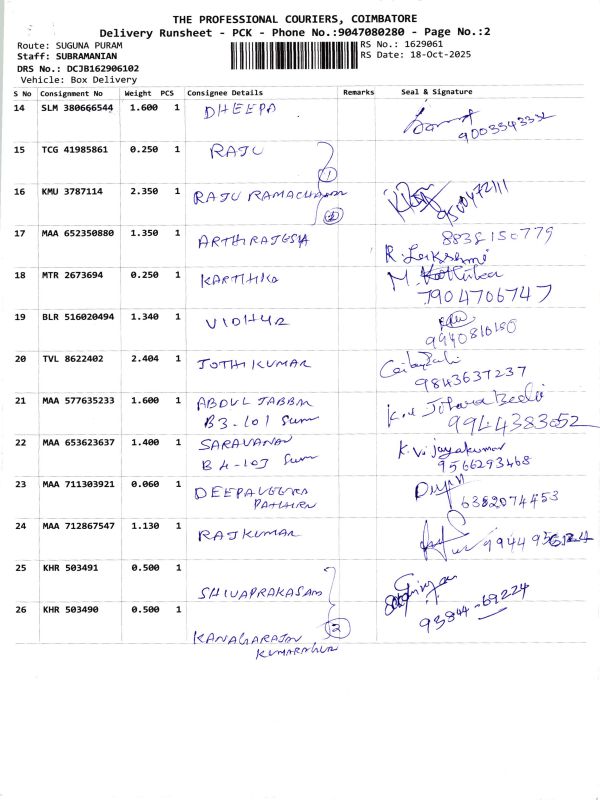 THE PROFESSIONAL COURIERS, COIMBATORE
Delivery Runsheet - PCK - Phone No.:9047080280 - Page No.:2
Route: SUGUNA PURAM
RS No.: 1629061
Staff: SUBRAMANIAN
RS Date: 18-Oct-2025
DRS No.: DCJB162906102
Vehicle: Box Delivery
S No Consignment No Weight PCS Consignee Details Remarks Seal & Signature
14 SLM 380666544 1.600 1 DHEEPA
15 TCG 41985861 0.250 1 RAJU
1
16 KMU 3787114 2.350 1 RAJU RAMACHANDRAN
17 MAA 652350880 1.350 1 8838150779
R. Lakshmi
18 MTR 2673694 0.250 1 KARTHIKA M.
7904706747
19 BLR 516020494 1.340 1 VIDHYA
9940816180
20 TVL 8622402 2.404 1 JOTHI KUMAR
9843637237
21 MAA 577635233 1.600 1 ABDUL JABBAR
B3-101
9944383052
22 MAA 653623637 1.400 1 SARAVANAN K. Vijayakumar
B4-103 9566293468
23 MAA 711303921 0.060 1
6382074453
24 MAA 712867547 1.130 1 RAJKUMAR
25 KHR 503491 0.500 1 SHIVAPRAKASAM
26 KHR 503490 0.500 1 93844-69224
2
KANAGARAJAN